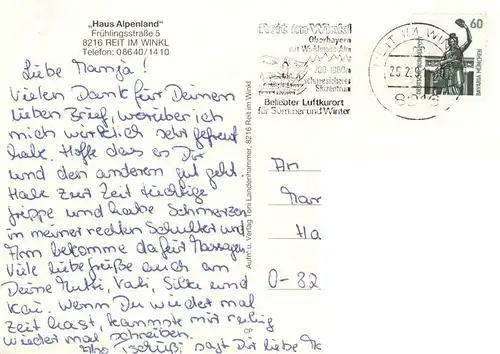 „Haus Alpenland"
Frühlingsstraße 5
8216 REIT IM WINKL
Telefon 08640/1410
Liebe Manja!
Vielen Dank für Deinen
lieben Brief, worüber ich
mich wirklich sehr gefreut
habe. Hoffe das es Dir
und den anderen gut geht.
Habe zur Zeit tüchtige
Grippe und habe Schmerzen
in meiner rechten Schulter und
Arm bekomme dafür Massagen.
Viele liebe Grüße auch an
Deine Mutti, Vati, Silke und
Kai. Wenn Du wieder mal
Zeit hast, kannste mir ruhig
wieder mal schreiben.
Tschüßi sagt Dir liebe
Aufn. u. Verlag Toni Landenhammer, 8216 Reit im Winkl
CP
Reit im Winkl
Oberbayern
mit Winklmoos-Alm
700-1800 m
schneesicheres
Skizentrum
Beliebter Luftkurort
für Sommer und Winter
REIT IM WINKL
25.2.9
8216
60
BAVARIA MÜNCHEN
DEUTSCHE BUNDESPOST
An
Mar
Ha
O-82